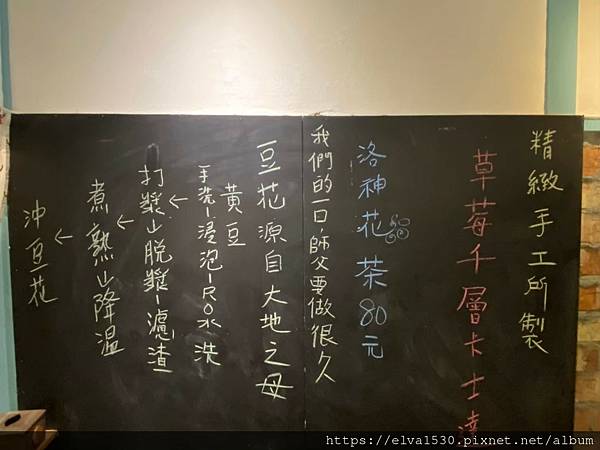 精緻手工所製
草莓千層卡士達
洛神花茶80元
我們的一口師父要做很久
豆花源自大地之母
黃豆
手洗~浸泡~RO水洗
←打漿~脫漿~濾渣
←煮熟~降溫
←沖豆花
https://elva1530.pixnet.net/album